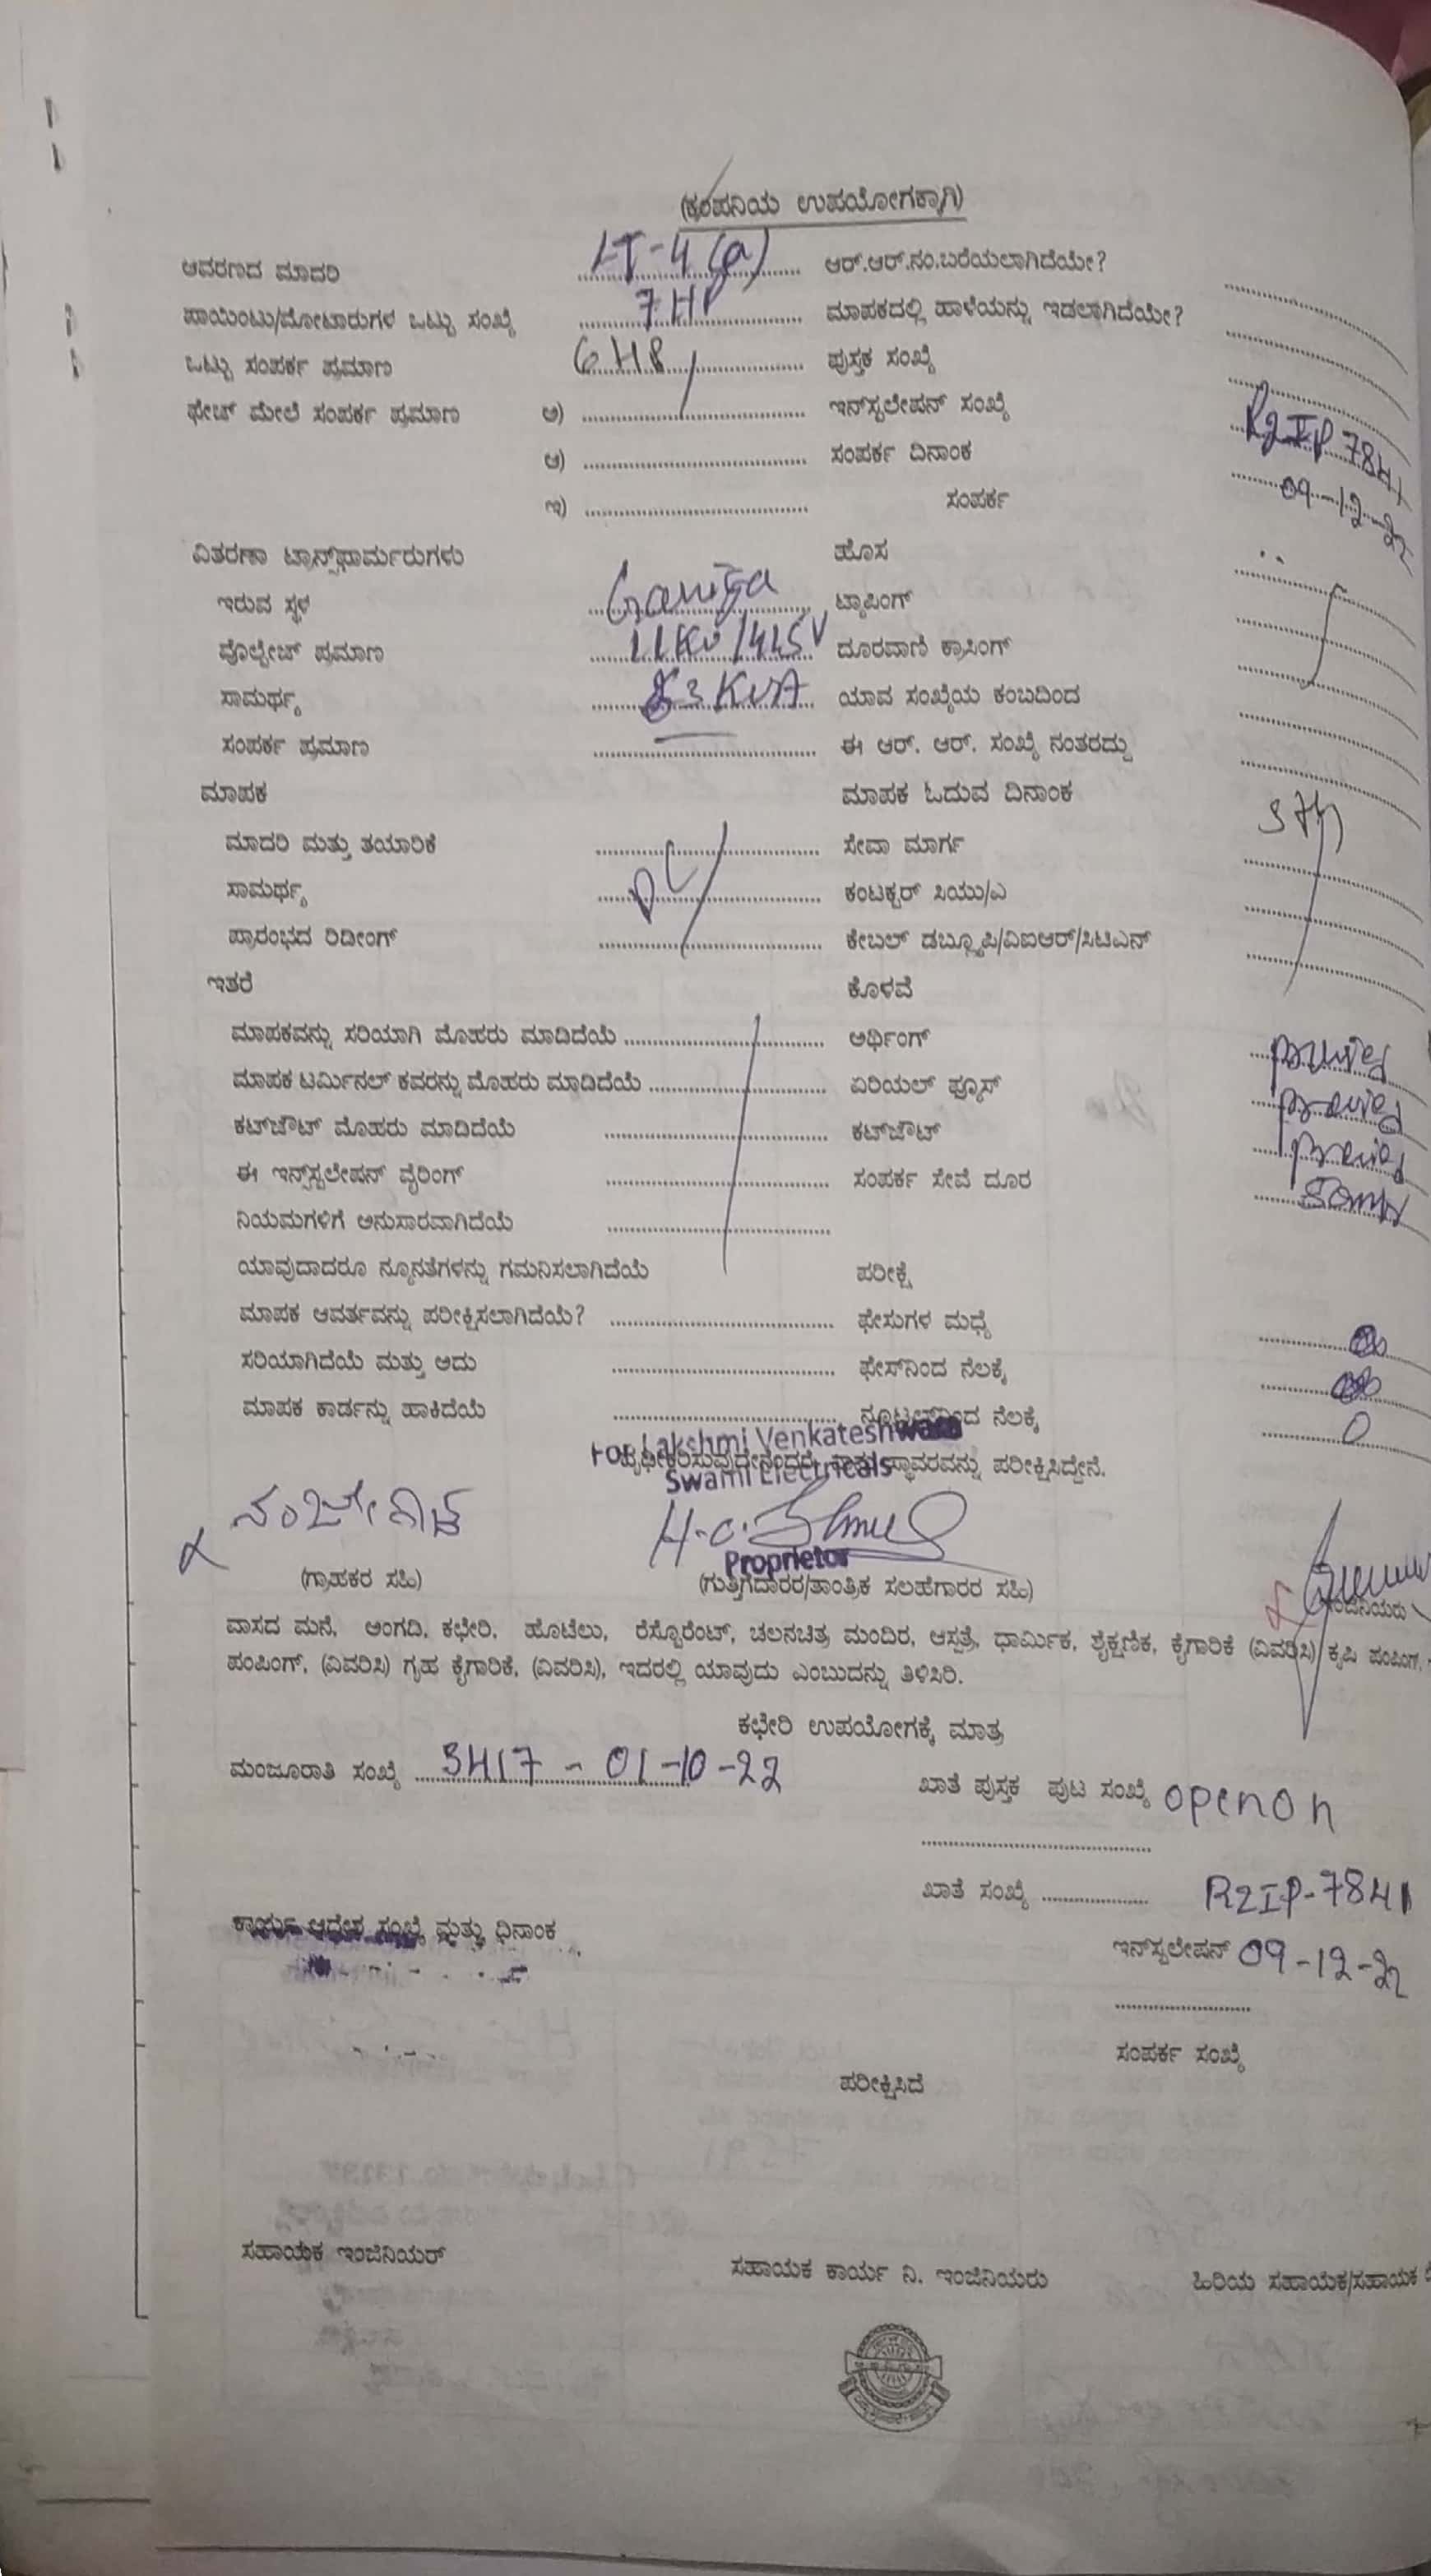 (ಕಂಪನಿಯ ಉಪಯೋಗಕ್ಕಾಗಿ)
ಆವರಣದ ಮಾದರಿ LT-4(a) ಆರ್.ಆರ್.ನಂ.ಬರೆಯಲಾಗಿದೆಯೇ?
ಪಾಯಿಂಟು/ಮೋಟಾರುಗಳ ಒಟ್ಟು ಸಂಖ್ಯೆ 7HP ಮಾಪಕದಲ್ಲಿ ಹಾಳೆಯನ್ನು ಇಡಲಾಗಿದೆಯೇ?
ಒಟ್ಟು ಸಂಪರ್ಕ ಪ್ರಮಾಣ ಪುಸ್ತಕ ಸಂಖ್ಯೆ
ಫೇಚ್ ಮೇಲೆ ಸಂಪರ್ಕ ಪ್ರಮಾಣ ಅ) ಇನ್‌ಸ್ಟಲೇಷನ್ ಸಂಖ್ಯೆ R2IP 7841
ಆ) ಸಂಪರ್ಕ ದಿನಾಂಕ 09-12-22
ಇ) ಸಂಪರ್ಕ
ವಿತರಣಾ ಟ್ರಾನ್ಸ್‌ಫಾರ್ಮರುಗಳು ಹೊಸ
ಇರುವ ಸ್ಥಳ ಟ್ಯಾಪಿಂಗ್
ವೊಲ್ಟೇಜ್ ಪ್ರಮಾಣ 11KV/445V ದೂರವಾಣಿ ಕ್ರಾಸಿಂಗ್
ಸಾಮರ್ಥ್ಯ 63 KVA ಯಾವ ಸಂಖ್ಯೆಯ ಕಂಬದಿಂದ
ಸಂಪರ್ಕ ಪ್ರಮಾಣ ಈ ಆರ್. ಆರ್. ಸಂಖ್ಯೆ ನಂತರದ್ದು
ಮಾಪಕ ಮಾಪಕ ಓದುವ ದಿನಾಂಕ
ಮಾದರಿ ಮತ್ತು ತಯಾರಿಕೆ ಸೇವಾ ಮಾರ್ಗ
ಸಾಮರ್ಥ್ಯ ಕಂಟಕ್ಟರ್ ಸಿಯು/ಎ
ಪ್ರಾರಂಭದ ರಿಡೀಂಗ್ ಕೇಬಲ್ ಡಬ್ಲ್ಯೂಪಿ/ವಿಐಆರ್/ಸಿಟಿಎನ್
ಇತರೆ ಕೊಳವೆ
ಮಾಪಕವನ್ನು ಸರಿಯಾಗಿ ಮೊಹರು ಮಾಡಿದೆಯೆ ಅರ್ಥಿಂಗ್
ಮಾಪಕ ಟರ್ಮಿನಲ್ ಕವರನ್ನು ಮೊಹರು ಮಾಡಿದೆಯೆ ಏರಿಯಲ್ ಫ್ಯೂಸ್
ಕಟ್‌ಔಟ್ ಮೊಹರು ಮಾಡಿದೆಯೆ ಕಟ್‌ಔಟ್
ಈ ಇನ್‌ಸ್ಟಲೇಷನ್ ವೈರಿಂಗ್ ಸಂಪರ್ಕ ಸೇವೆ ದೂರ
ನಿಯಮಗಳಿಗೆ ಅನುಸಾರವಾಗಿದೆಯೆ
ಯಾವುದಾದರೂ ನ್ಯೂನತೆಗಳನ್ನು ಗಮನಿಸಲಾಗಿದೆಯೆ ಪರೀಕ್ಷೆ
ಮಾಪಕ ಆವರ್ತವನ್ನು ಪರೀಕ್ಷಿಸಲಾಗಿದೆಯೆ? ಫೇಸುಗಳ ಮಧ್ಯೆ
ಸರಿಯಾಗಿದೆಯೆ ಮತ್ತು ಅದು ಫೇಸ್‌ನಿಂದ ನೆಲಕ್ಕೆ
ಮಾಪಕ ಕಾರ್ಡನ್ನು ಹಾಕಿದೆಯೆ ನ್ಯೂಟ್ರಲ್‌ನಿಂದ ನೆಲಕ್ಕೆ 0
For Lakshmi Venkateshwara
ದೃಢೀಕರಿಸುವುದೇನೆಂದರೆ, ಸ್ಥಾವರವನ್ನು ಪರೀಕ್ಷಿಸಿದ್ದೇನೆ.
Swami Electricals
Proprietor
(ಗ್ರಾಹಕರ ಸಹಿ) (ಗುತ್ತಿಗೆದಾರರ/ತಾಂತ್ರಿಕ ಸಲಹೆಗಾರರ ಸಹಿ)
ವಾಸದ ಮನೆ, ಅಂಗಡಿ, ಕಛೇರಿ, ಹೊಟೆಲು, ರೆಸ್ಟೊರೆಂಟ್, ಚಲನಚಿತ್ರ ಮಂದಿರ, ಆಸ್ಪತ್ರೆ, ಧಾರ್ಮಿಕ, ಶೈಕ್ಷಣಿಕ, ಕೈಗಾರಿಕೆ (ವಿವರಿಸಿ) ಕೃಷಿ ಪಂಪಿಂಗ್,
ಪಂಪಿಂಗ್, (ವಿವರಿಸಿ) ಗೃಹ ಕೈಗಾರಿಕೆ, (ವಿವರಿಸಿ), ಇದರಲ್ಲಿ ಯಾವುದು ಎಂಬುದನ್ನು ತಿಳಿಸಿರಿ.
ಕಛೇರಿ ಉಪಯೋಗಕ್ಕೆ ಮಾತ್ರ
ಮಂಜೂರಾತಿ ಸಂಖ್ಯೆ 3417 - 01-10-22
ಖಾತೆ ಪುಸ್ತಕ ಪುಟ ಸಂಖ್ಯೆ
ಖಾತೆ ಸಂಖ್ಯೆ R2IP-7841
ಕಾರ್ಯ ಆದೇಶ ಸಂಖ್ಯೆ ಮತ್ತು ದಿನಾಂಕ
ಇನ್‌ಸ್ಟಲೇಷನ್ 09-12-22
ಸಂಪರ್ಕ ಸಂಖ್ಯೆ
ಪರೀಕ್ಷಿಸಿದೆ
ಸಹಾಯಕ ಇಂಜಿನಿಯರ್ ಸಹಾಯಕ ಕಾರ್ಯ ನಿ. ಇಂಜಿನಿಯರು ಹಿರಿಯ ಸಹಾಯಕ/ಸಹಾಯಕ